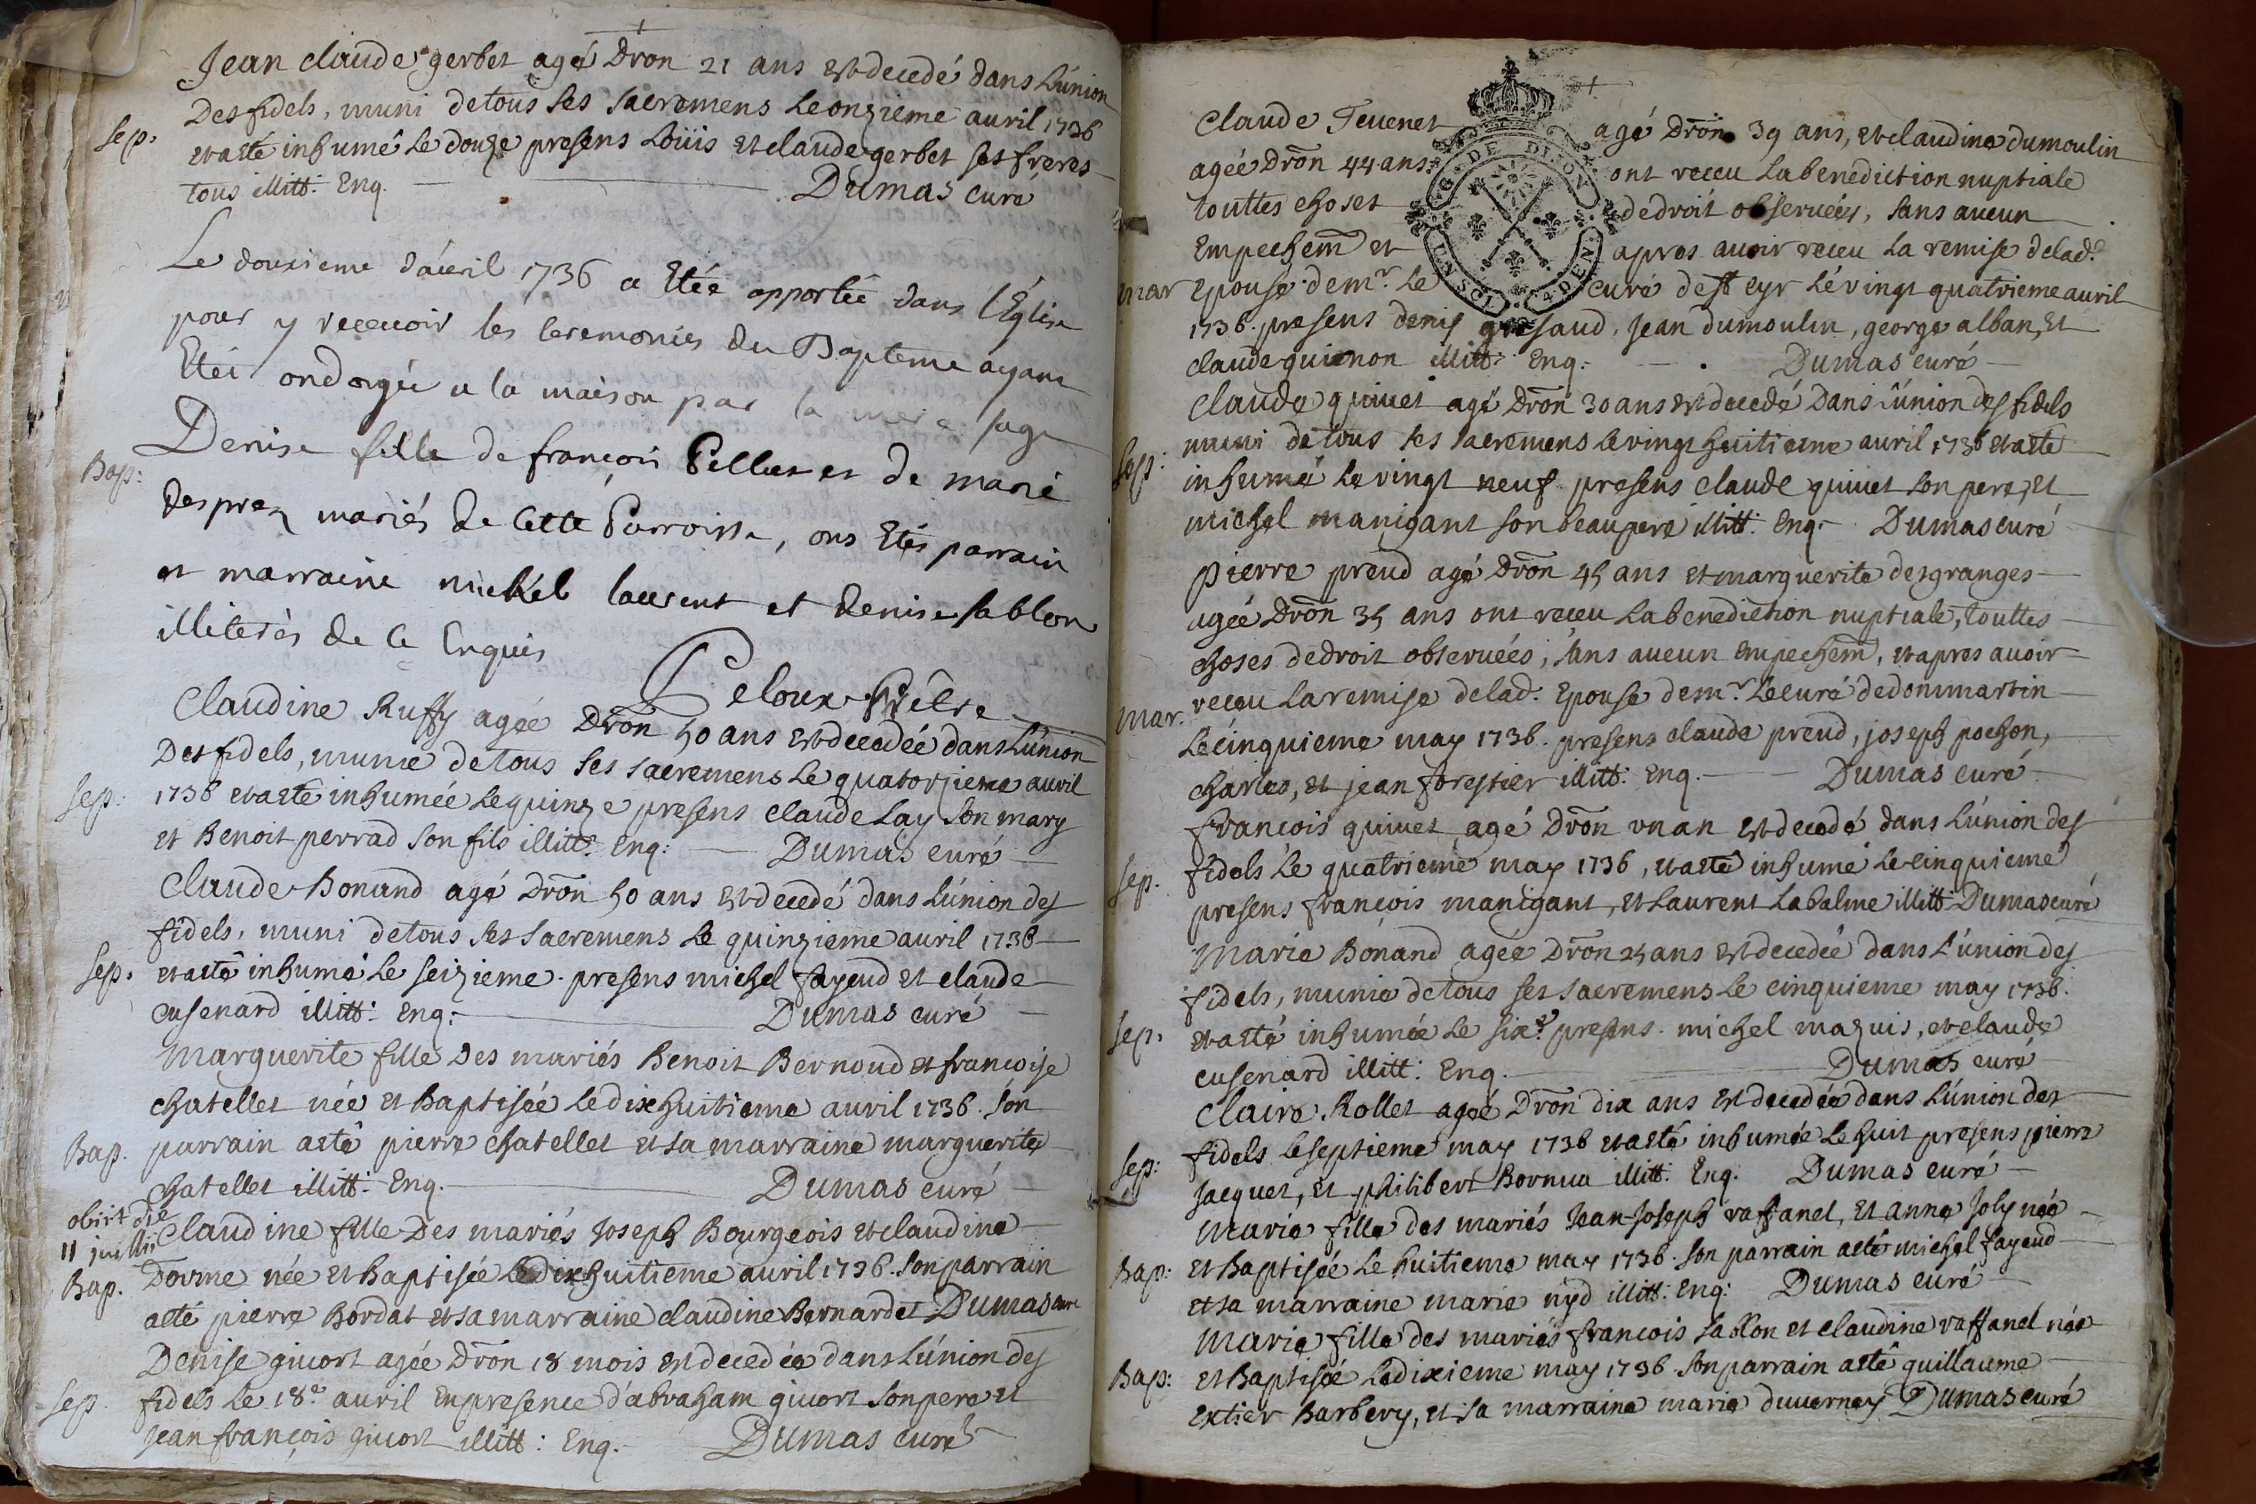 Jean claude gerbet agé Dron 21 ans est decedé dans L'union
Des fidels, muni de tous ses sacremens le onzieme auril 1736
sep. et a eté inhumé Le douze presens Loüis et claude gerbet ses freres
tous illitt: Enq. Dumas curé
Le douxieme d'avril 1736 a Etée apportée dans l'Église
pour y recevoir les ceremonies du Bapteme ayant
Etéé ondoyée a la maison par la mere sage
Bap: Denise fille de françois Pellut et de marie
Desprez mariés de Cette Parroisse, ont Etés parrain
et marraine michel laurent et denise sablon
illiterés de ce Enquis
Peloux Prêtre
Claudine Ruffy agée Dron 50 ans est decedée dans L'union
Des fidels, munie de tous ses sacremens Le quatorzieme auril
sep: 1736 et a eté inhumée Le quinze presens claude Lay son mary
et Benoit perrad son fils illitt: Enq: Dumas curé
Claude Bonand agé Dron 50 ans est decedé dans L'union des
fidels, muni de tous ses sacremens Le quinzieme auril 1736
sep. et a eté inhumé Le seizieme. presens michel fayeud et claude
cusenard illitt: Enq: Dumas curé
Marguerite fille Des mariés Benoit Bernoud et francoise
chatellet née et Baptisée Le dix huitieme auril 1736. son
Bap. parrain a eté pierre chatellet et sa marraine marguerite
chatellet illitt: Enq. Dumas curé
obiit die
11 juillii
Claudine fille Des mariés Joseph Bourgeois et claudine
Bap. Dorme née et Baptisée Le dix huitieme auril 1736. son parrain
a eté pierre Bordat et sa marraine claudine Bernardet Dumas curé
Denise giuort agée Dron 18 mois est decedée dans L'union des
sep. fidels Le 18e auril En presence d'abraham giuort son pere et
jean françois giuort illitt: Enq. Dumas curé
G. DE DIJON
4 DEN.
Claude Teuenet agé Dron 39 ans, et claudine dumoulin
agée Dron 44 ans ont receu La benediction nuptiale
touttes choses de droit obseruées, sans aucun
Empechem et apres auoir receu La remise de lad.e
mar Epouse de mr. Le curé de st cyr Le vingt quatrieme auril
1736. presens denis gresaud, Jean dumoulin, george alban, Et
claude guienon illitt: Enq: Dumas curé
Claude quiuet agé Dron 30 ans est decedé Dans L'union des fidels
muni de tous ses sacremens Le vingt huitieme auril 1736 et a eté
sep: inhumé Le vingt neuf presens claude quiuet son pere, et
michel manigant son beaupere illitt: Enq: Dumas curé
Pierre preud agé Dron 45 ans et marguerite desgranges
agée Dron 35 ans ont receu La benediction nuptiale, touttes
choses de droit obseruées, sans aucun empechem, et apres auoir
mar. receu La remise de lad: Epouse de mr. Le curé de dommartin
Le cinquieme may 1736. presens claude preud, joseph pochon,
charles, et jean forestier illitt: Enq. Dumas curé
francois quiuet agé Dron vn an est decedé dans L'union des
sep. fidels Le quatrieme may 1736, et a eté inhumé Le cinquieme
presens françois manigant, et Laurent Labalme illitt Dumas curé
Marie Bonand agée Dron 25 ans est decedée dans L'union des
fidels, munie de tous ses sacremens Le cinquieme may 1736.
sep. et a eté inhumée Le sixe. presens. michel mazuis, et claude
cusenard illitt: Enq. Dumas curé
Claire Rollet agée Dron dix ans est decedée dans L'union des
sep: fidels Le septieme may 1736 et a eté inhumée Le huit presens pierre
jacquet, et philibert Bornua illitt: Enq: Dumas curé
Marie fille des mariés Jean Joseph raffanel, et anne joly née
Bap: et Baptisée Le huitieme may 1736. son parrain a eté michel fayeud
et sa marraine marie nyd illitt: Enq: Dumas curé
Marie fille des mariés francois sablon et claudine raffanel née
Bap: et Baptisée Le dixieme may 1736. son parrain a eté guillaume
Extier Barbery, et sa marraine marie duuernay Dumas curé